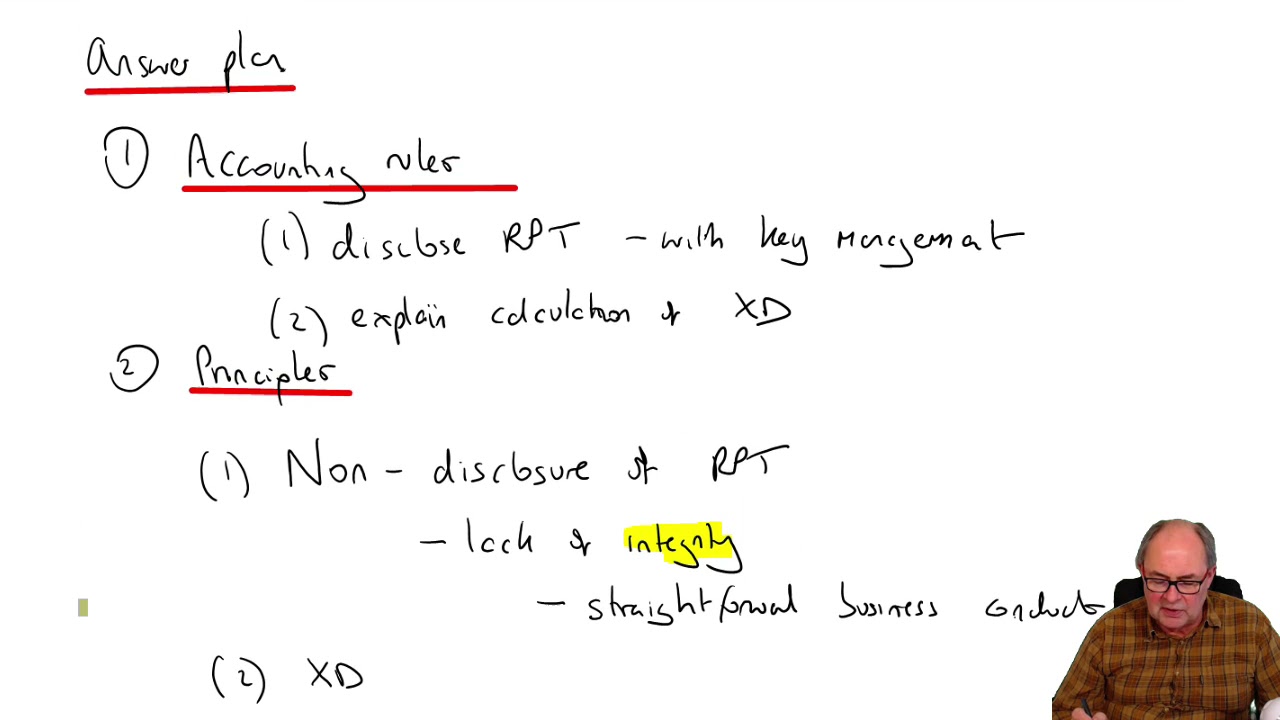 Answer plan
① Accounting rules
(1) disclose RPT – with key management
(2) explain calculation of XD
② Principles
(1) Non-disclosure of RPT
– lack of integrity
– straightforward business conduct
(2) XD